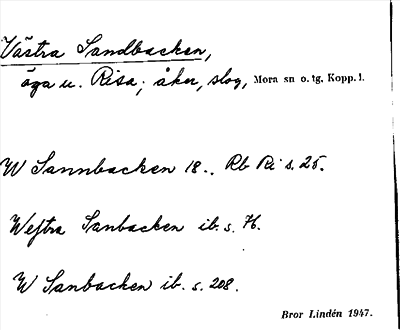 Västra Sandbacken,
äga u. Risa; åker, slog, Mora sn o. tg, Kopp. l.
W Sannbacken 18.. Rb Ri s. 25.
Westra Sanbacken ib. s. 76.
W Sanbacken ib. s. 208.
Bror Lindén 1947.